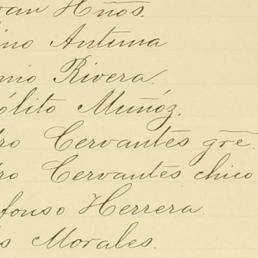 van Hños.
ino Antuna
onio Rivera
ólito Muñóz.
ro Cervantes gre.
ro Cervantes chico
fonso Herrera.
s Morales.